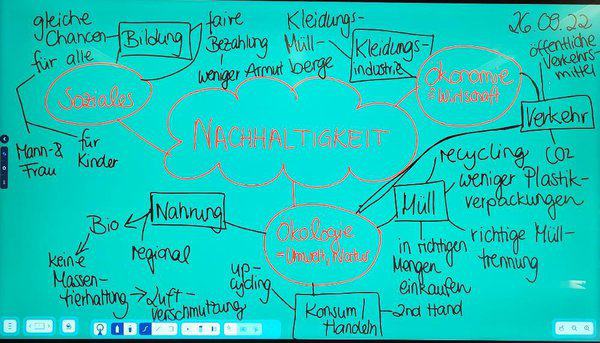 gleiche
Chancen
für alle
Bildung
faire
Bezahlung
weniger Armut
Kleidungs-
Müll-
berge
Kleidungs-
industrie
26.09.22
öffentliche
Verkehrs-
mittel
Soziales
Ökonomie
= Wirtschaft
Mann &
Frau
für
Kinder
NACHHALTIGKEIT
Verkehr
CO2
recycling
weniger Plastik-
verpackungen
Müll
richtige Müll-
trennung
in richtigen
Mengen
einkaufen
Nahrung
Bio
regional
keine
Massen-
tierhaltung
Luft-
verschmutzung
Ökologie
= Umwelt, Natur
up-
cycling
Konsum/
Handeln
2nd Hand